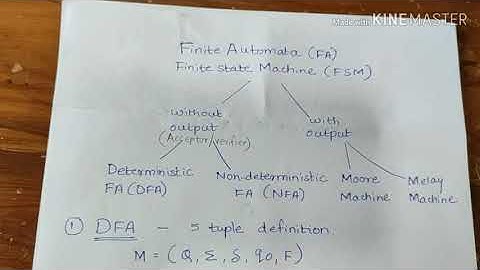 Made with KINEMASTER
Finite Automata (FA)
Finite state Machine (FSM)
without output (Acceptor/verifier)
with output
Deterministic FA (DFA)
Non-deterministic FA (NFA)
Moore Machine
Melay Machine
① DFA - 5 tuple definition.
M = (Q, Σ, δ, q0, F)